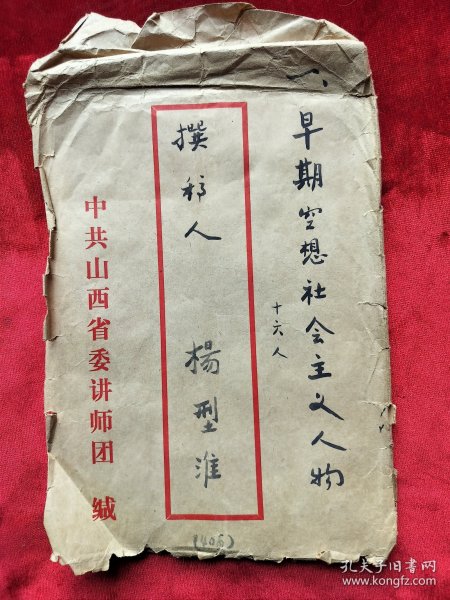 一、早期空想社会主义人物
十六人
撰稿人 楊型淮
中共山西省委讲师团 缄
(405)
孔夫子旧书网
www.kongfz.com